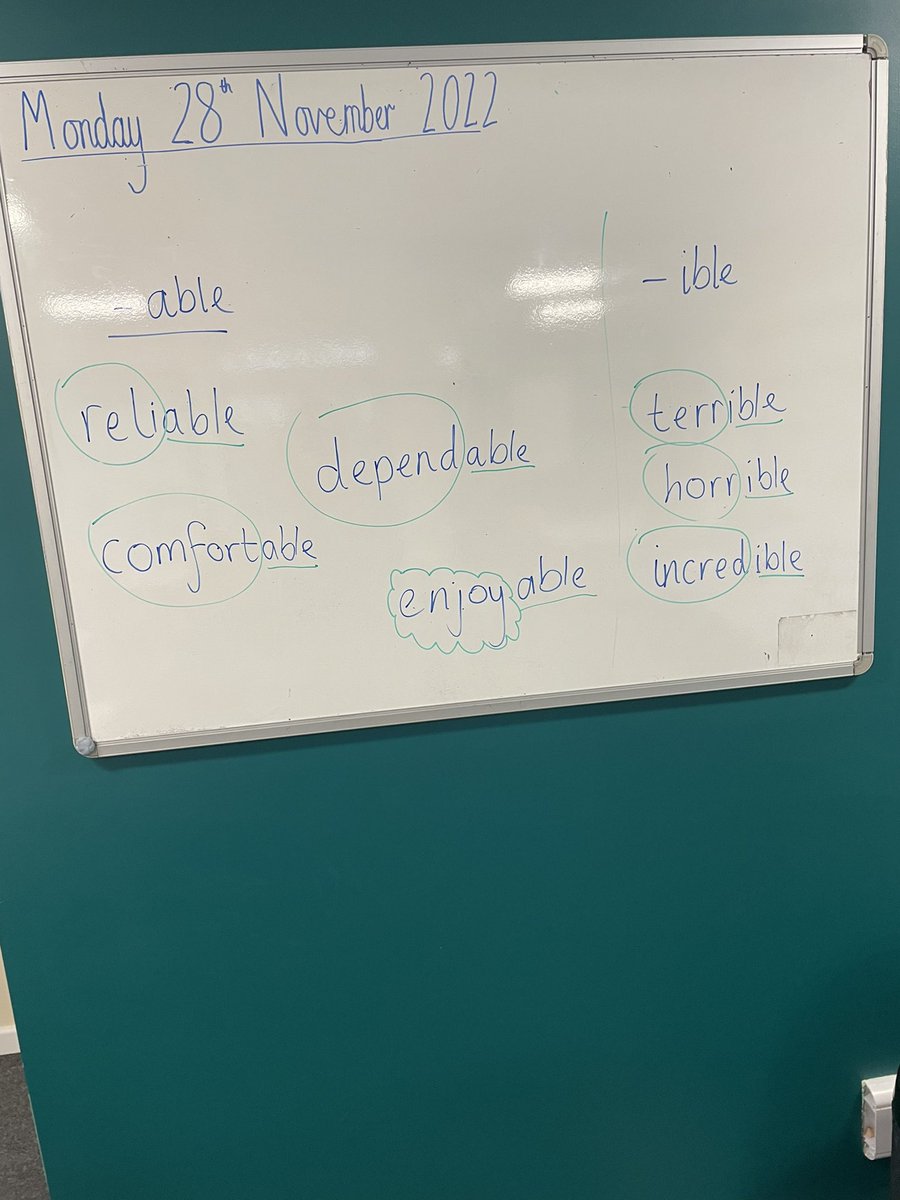 Monday 28th November 2022
- able
reliable
dependable
comfortable
enjoyable
- ible
terrible
horrible
incredible